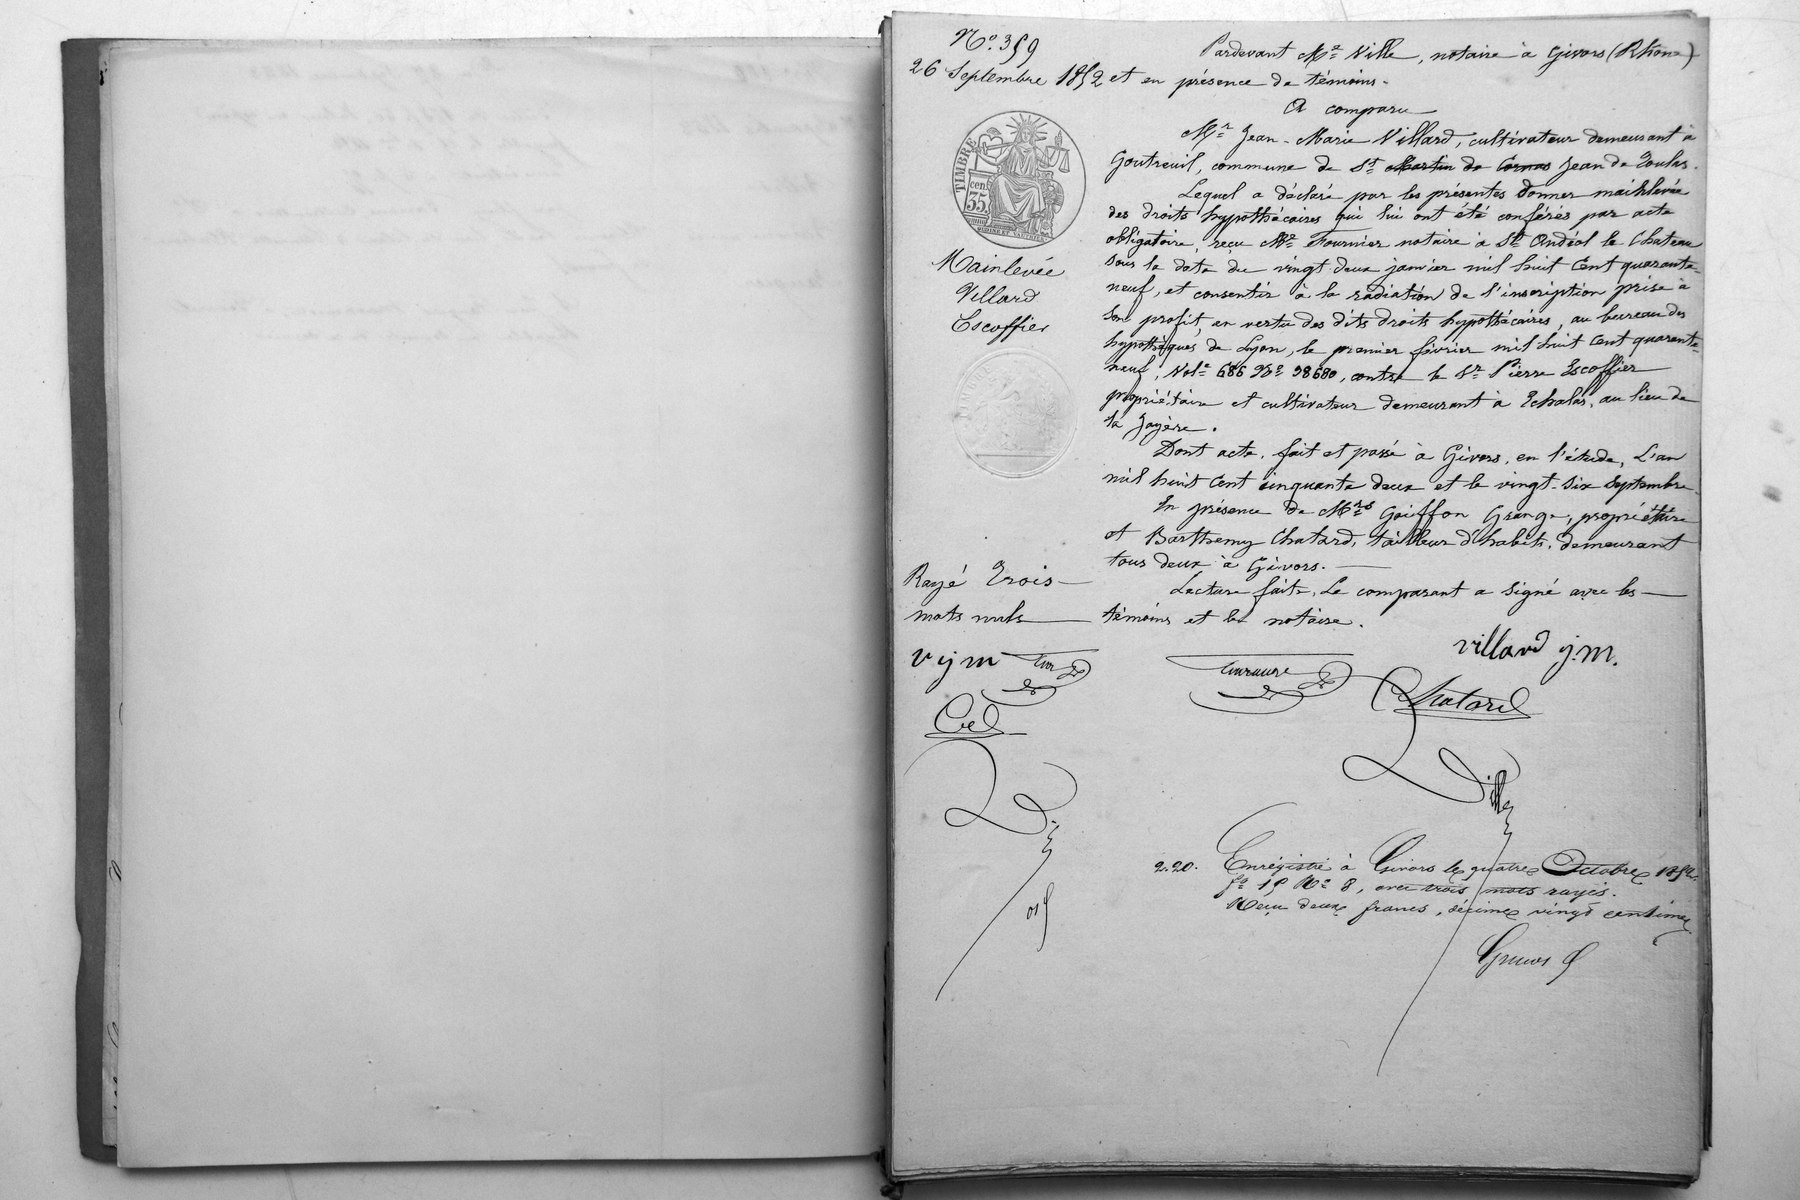 N° 359
26 Septembre 1852
Pardevant Me Ville, notaire à Givors (Rhône)
et en présence de témoins.
A comparu
Mr Jean-Marie Villard, cultivateur demeurant à
Goutreuil, commune de St Martin de Cornas Jean de Toulas.
Lequel a déclaré par les présentes donner mainlevée
des droits hypothécaires qui lui ont été conférés par acte
obligatoire, reçu Me Fournier notaire à St Andéol le Chateau
sous la date du vingt deux janvier mil huit cent quarante-
neuf, et consentir à la radiation de l'inscription prise à
son profit, en vertu des dits droits hypothécaires, au bureau des
hypothèques de Lyon, le premier février mil huit cent quarante-
neuf, Vole 686 No 98680, contre le Sr Pierre Escoffier
propriétaire et cultivateur demeurant à Echalas, au lieu de
la Jayère.
Dont acte, fait et passé à Givors, en l'étude, L'an
mil huit cent cinquante deux et le vingt-six Septembre.
En présence de Mrs Goiffon Grange, propriétaire
et Barthemy Chatard, tailleur d'habits, demeurant
tous deux à Givors.
Lecture faite, Le comparant a signé avec les
témoins et le notaire.
TIMBRE
35 cen
Mainlevée
Villard
Escoffier
Rayé Trois
mots nuls
v j m
villard j.m.
Chatard
Ville
2.20.
Enregistré à Givors le quatre Octobre 1852
fo 18 No 8, avec trois mots rayés.
Reçu deux francs, décime vingt centimes